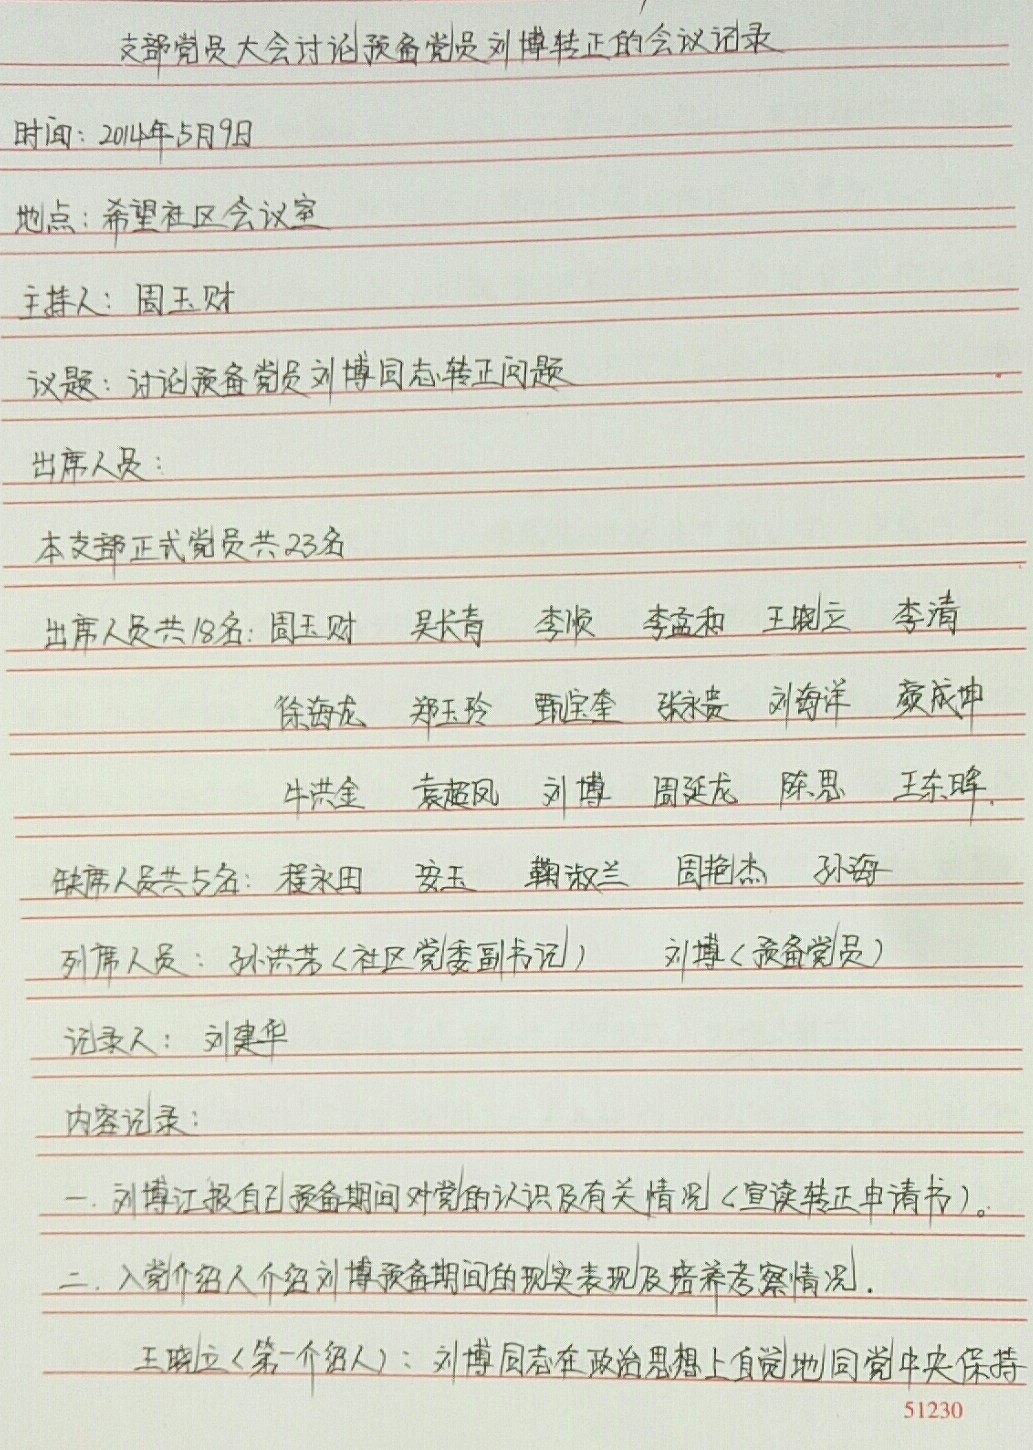 支部党员大会讨论预备党员刘博转正的会议记录
时间：2014年5月9日
地点：希望社区会议室
主持人：周玉财
议题：讨论预备党员刘博同志转正问题
出席人员：
本支部正式党员共23名
出席人员共18名：周玉财 吴长青 李顺 李孟和 王晓立 李清
徐海龙 郑玉玲 甄宝奎 张永贵 刘海洋 颜成坤
牛洪金 袁超凤 刘博 周延龙 陈思 王东晖
缺席人员共5名：程永田 安玉 鞠淑兰 周艳杰 孙海
列席人员：孙洪芳（社区党委副书记） 刘博（预备党员）
记录人：刘建华
内容记录：
一.刘博汇报自己预备期间对党的认识及有关情况（宣读转正申请书）。
二.入党介绍人介绍刘博预备期间的现实表现及培养考察情况.
王晓立（第一介绍人）：刘博同志在政治思想上自觉地同党中央保持
51230